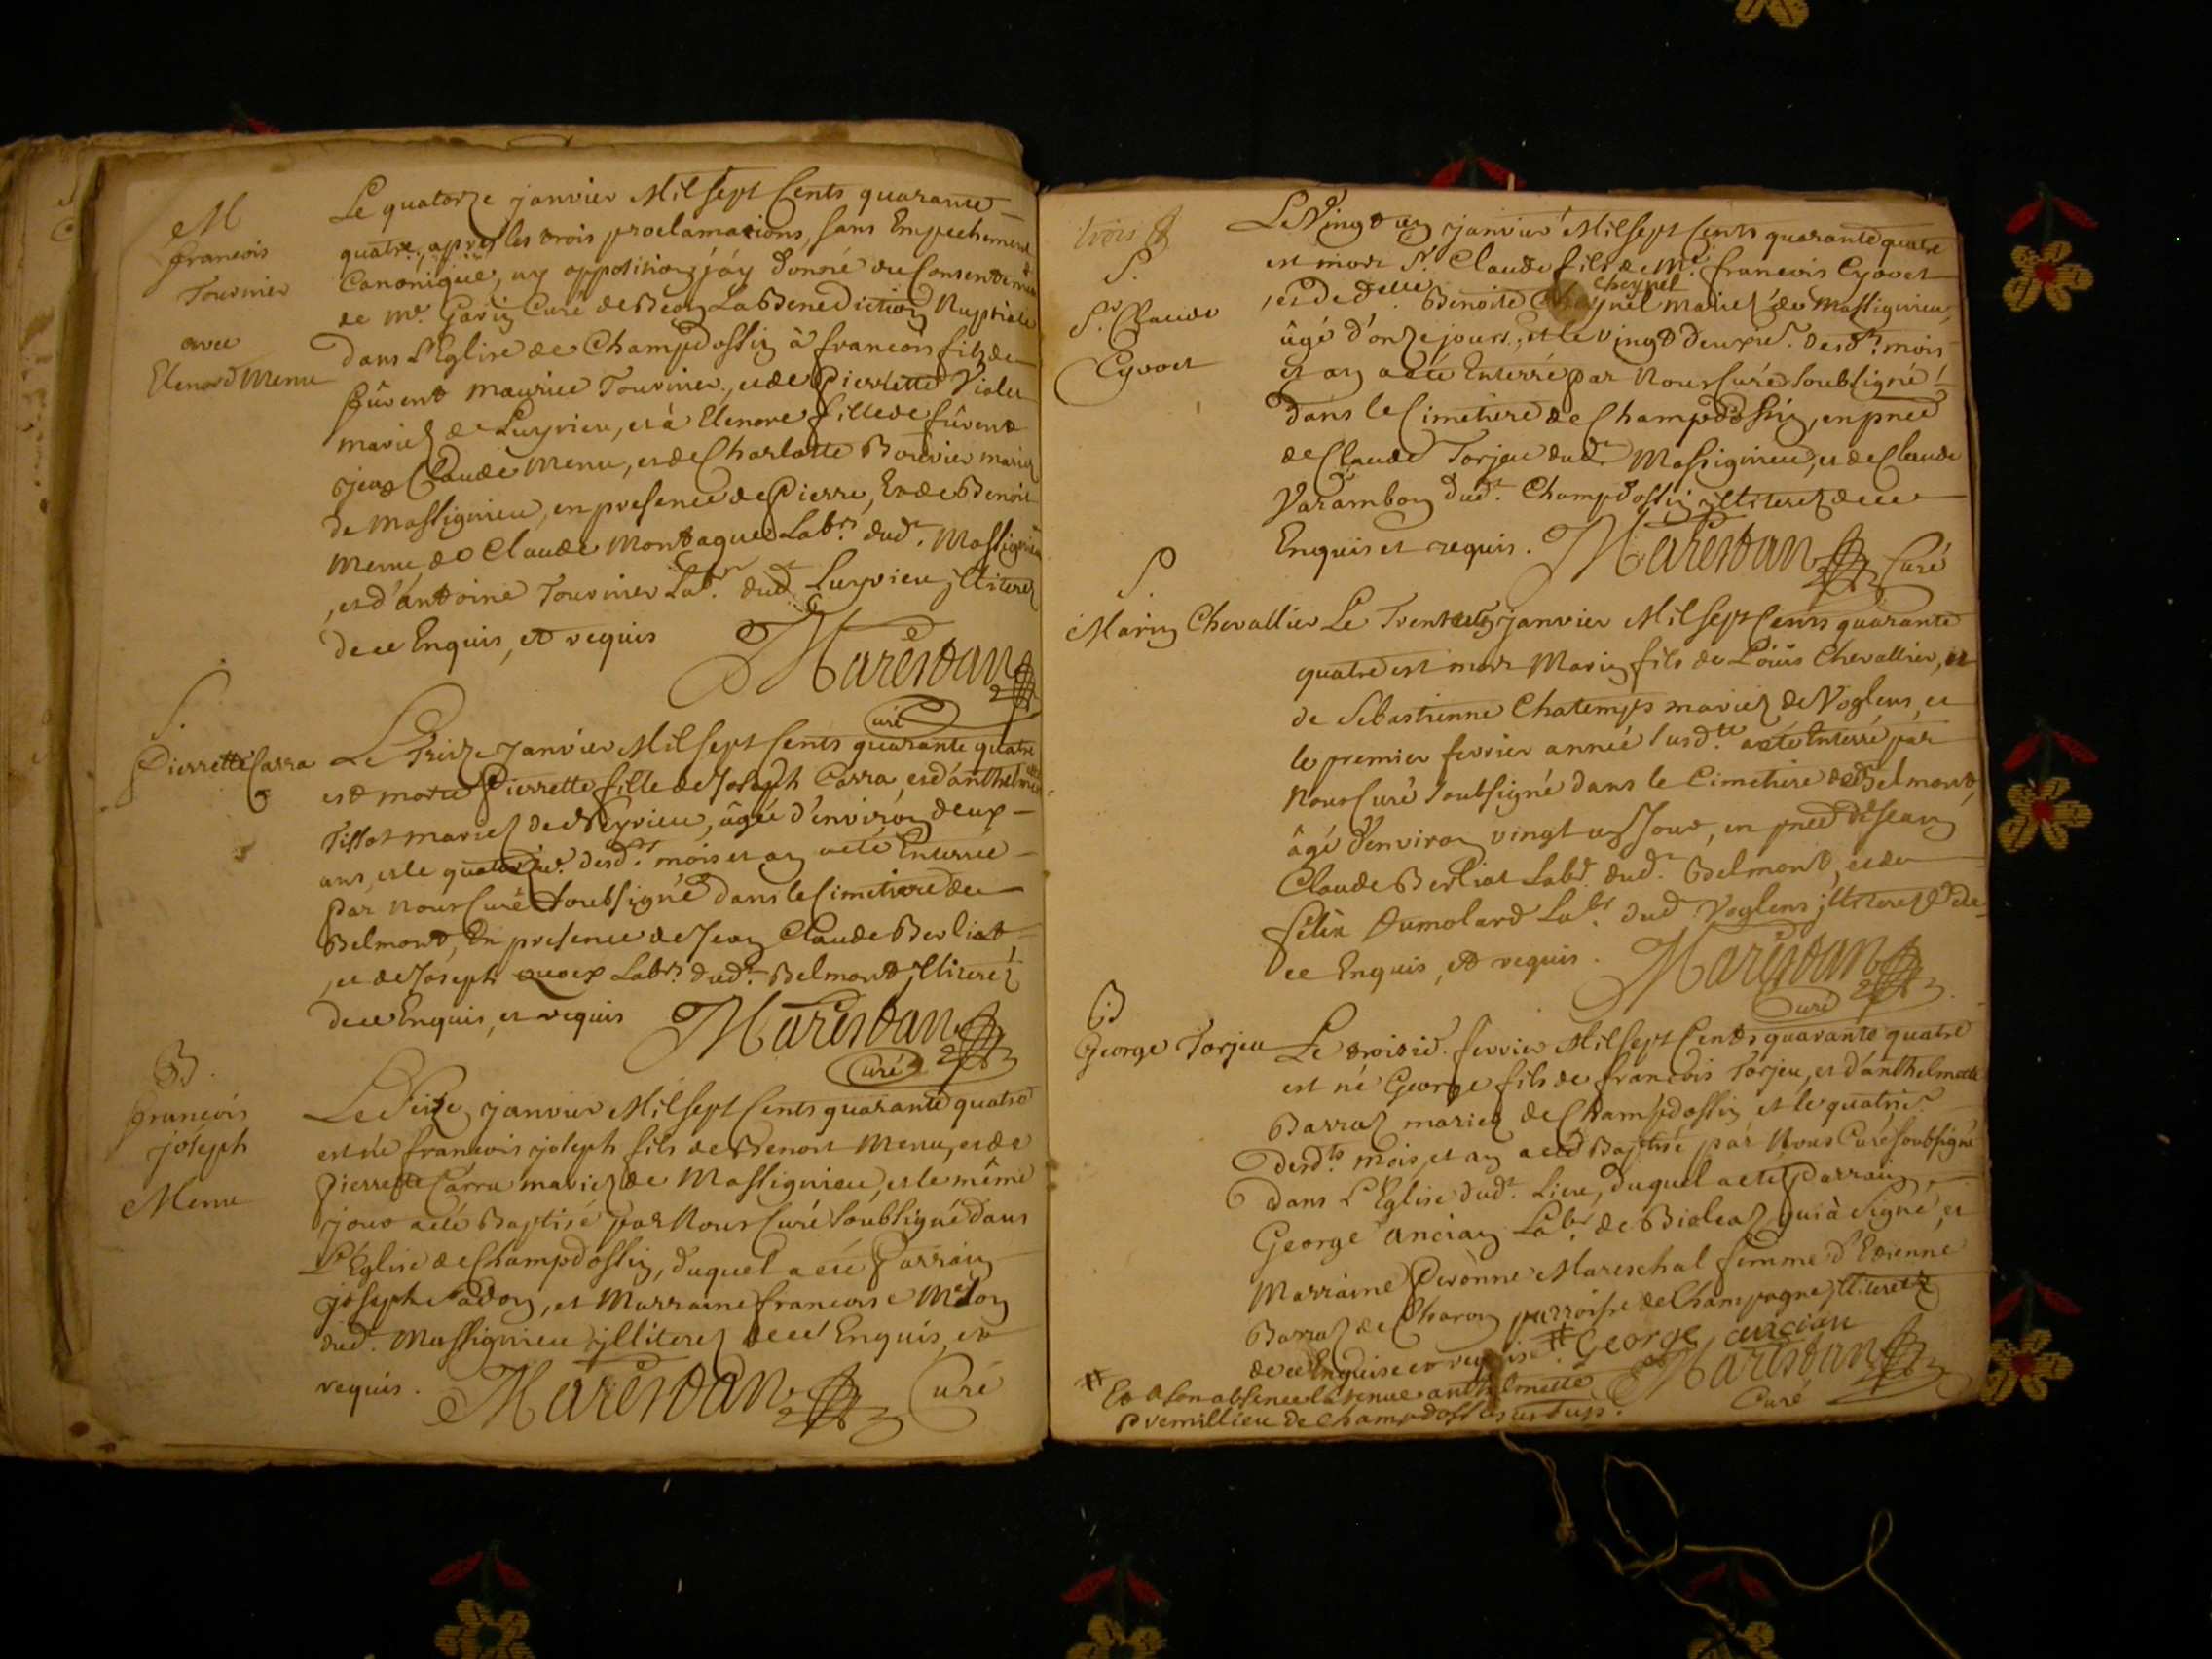 M
francois
Tournier
avec
Elenord Menu
Le quatorze janvier Mil sept Cents quarante
quatre, après les trois proclamations, sans Empechement
Canonique, ny opposition j'áy donné du Consentement
de me. Garin Curé de Beon La Benediction Nuptiale
dans L'Eglise de Champdossin à francois fils de
fûrent Maurice Tournier, et de Pierrette Violet
mariez de Luyrieu, et à Elenore fille de fûrent
jean Claude Menu, et de Charlotte Bouvier mariez
de Massignieu, en presence de Pierre, Et de Benoit
Menu, de Claude Montagne Labrs. dud. Massignieu
, et d'antoine Tournier Labr. dud. Luyrieu jlliterez
de ce Enquis, et requis
Marestan
Curé
S.
Pierrette Carra
Le Treize janvier Mil sept Cents quarante quatre
est morte Pierrette fille de Joseph Carra, et d'anthelmette
Tillot mariez de Veyrieu, âgée d'environ deux
ans, et le quatorzie. desd.ts mois et an aété Enterrée
par nous Curé soubsigné dans le Cimetiere de
Belmont, En presence de Jean Claude Berliat,
, et de Joseph Labrs. dud.t Belmont jlliterez
de ce Enquis, et requis
Marestan
Curé
B.
francois
joseph
Menu
Le seize janvier Mil sept Cents quarante quatre
est né francois joseph fils de Benoit Menu, et de
Pierrette Carra mariez de Massignieu, et le même
jour aété Baptisé par Nous Curé soubsigné dans
L'Eglise de Champdossin, duquel a eté Parrain
joseph , et Marraine francoise
dud. Massignieu jlliterez de ce Enquis, et
requis.
Marestan Curé
trois
S.
Sr. Claude
Eyvoet
Le Vingt un janvier Mil sept Cents quarante quatre
est mort Sr. Claude fils de Me. francois Eyvoet
Cheynel
, et de delle. Benoite Cheynel mariez de Massignieu,
âgé d'onze jours, et le vingt deuxie. desd.ts mois
et an aété Enterré par nous Curé soubsigné
dans le Cimetiere de Champdossin, en pnce
de Claude Torjeu dud.t Massignieu, et de Claude
Varambon dud.t Champdossin jlliterez de ce
Enquis et requis. Marestan Curé
S.
Marin Chevallier
Le Trente un janvier Mil sept Cents quarante
quatre est mort Marin fils de Loüis Chevallier, et
de Sebastienne Chatemps mariez de Voglens, et
le premier fevrier année susd.te aété Enterré par
nous Curé soubsigné dans le Cimetiere de Belmont,
âgé d'environ vingt un jour, en pnce de Jean
Claude Berliat Labr. dud.t Belmont, et de
felix Dumolard Labr. dud. Voglens jlliterez de
ce Enquis, et requis. Marestan
Curé
B
George Torjeu
Le troisie. fevrier Mil sept Cents quarante quatre
est né George fils de francois Torjeu, et d'anthelmette
Barraz mariez de Champdossin et le quatrie.
desd.ts mois et an aeté Baptisé par Nous Curé soubsigné
dans L'Eglise dud.t Lieu, duquel a eté Parrain
George ancian Labr. de Bioleaz qui à signé, et
Marraine Peronne Mareschal femme d'Etienne
Barraz de Charon parroisse de Champagne jlliterez
de ce Enquise et requise # George ancian
# Et a son absence l'a tenue anthelmette Marestan
Premillieu de Champdossin Curé